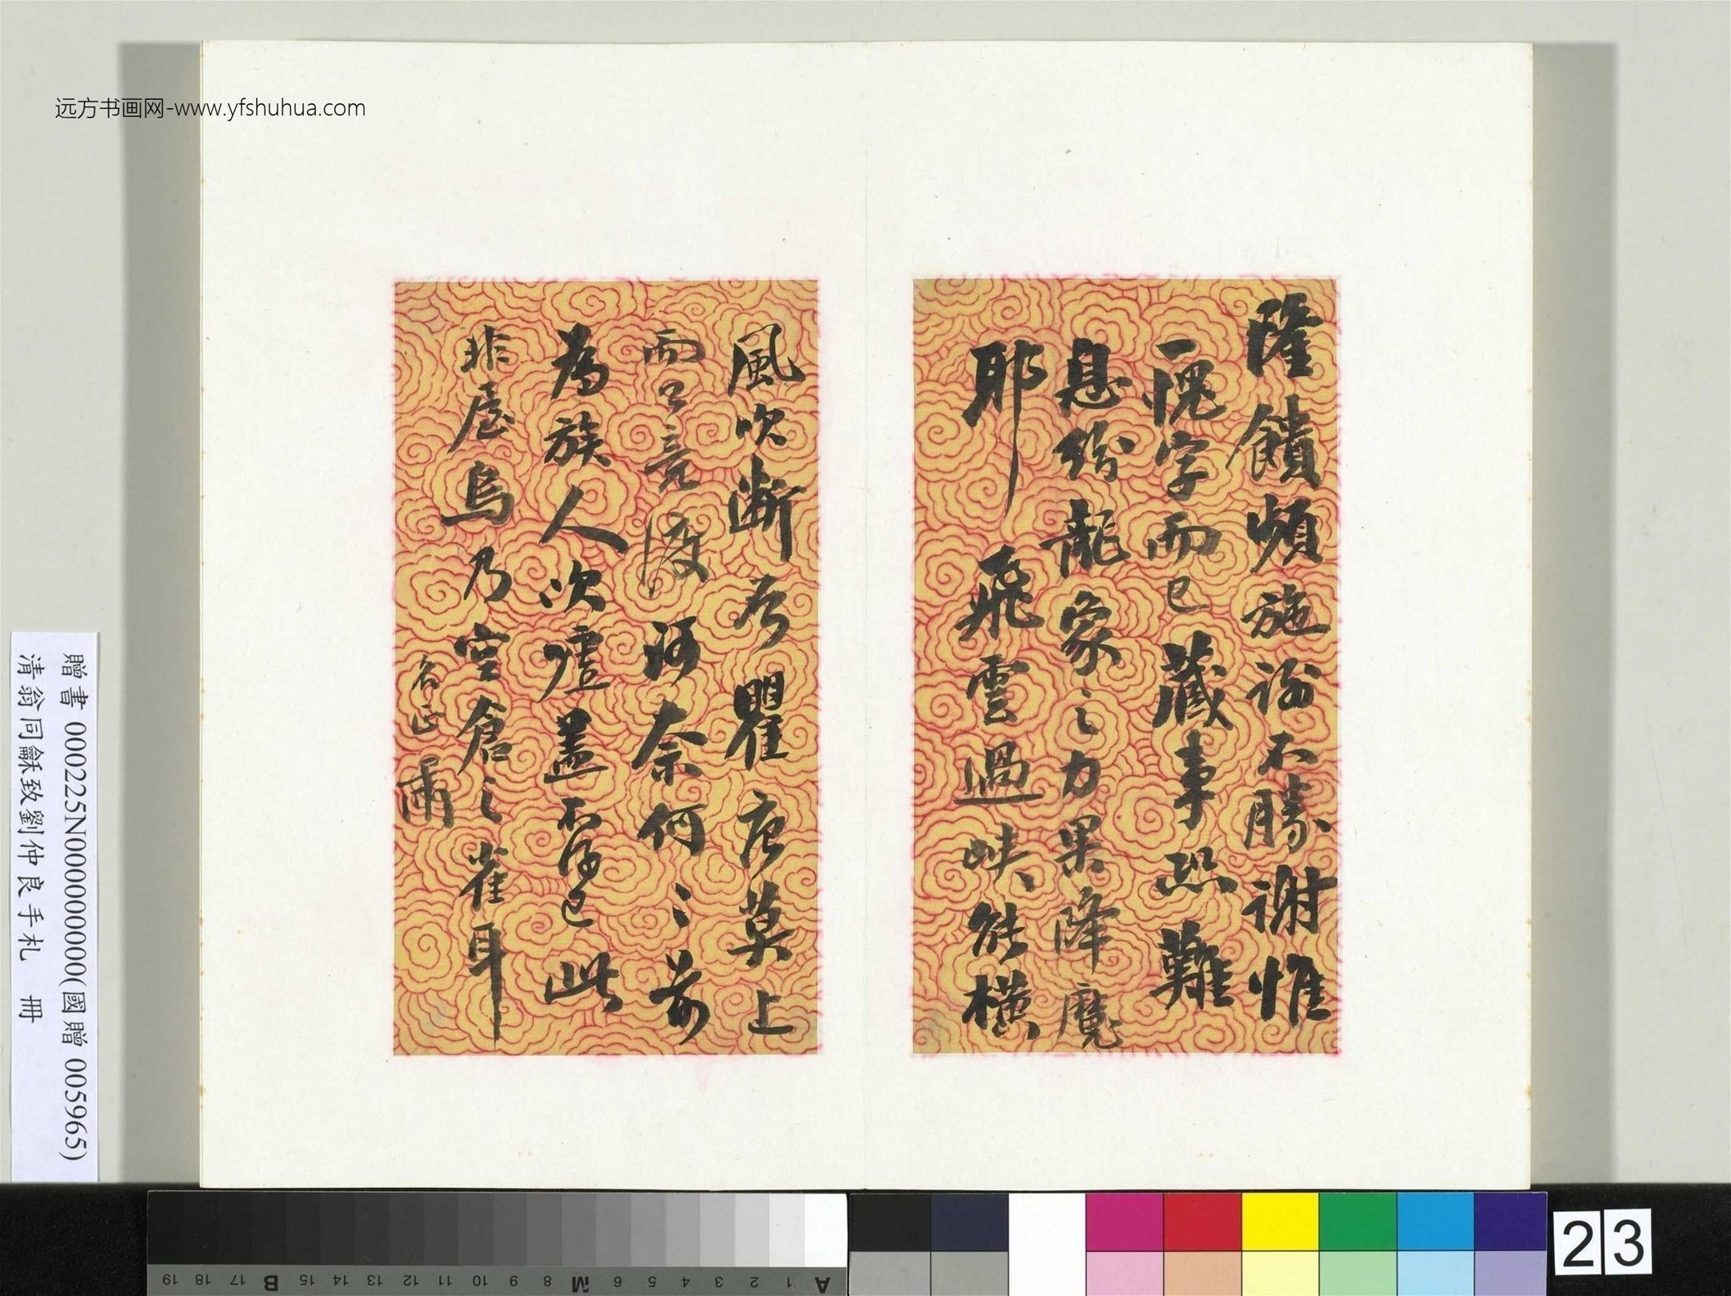 远方书画网-www.yfshuhua.com
隆饋頻施謝不勝謝惟
一愧字而已藏事恐難
息紛龍象之力果降魔
耶 飛雲過峽能橫
風吹斷否瞿唐莫上
而公竟渡河奈何〻前
為族人次壇蓋不得已此
非屋烏乃空倉之雀耳
名正
贈書 000225N000000000(國贈 005965)
清翁同龢致劉仲良手札 冊
19 18 17 B 16 15 14 13 12 11 10 9 8 M 7 6 5 4 3 2 1 A
23